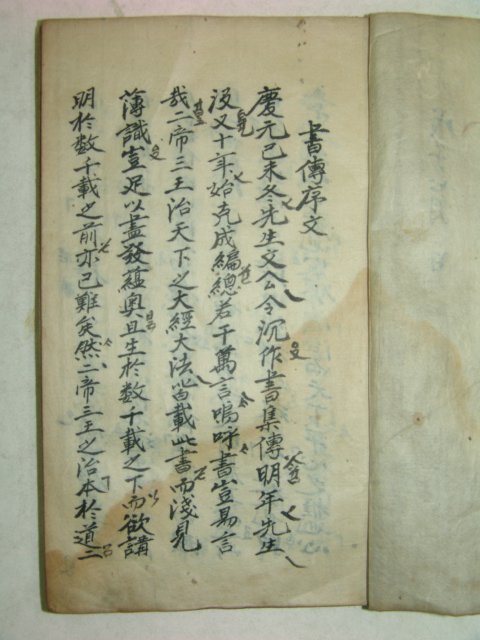 書傳序文
慶元己未冬先生文公令沉作書集傳明年先生
沒又十年始克成編總若干萬言嗚呼書豈易言
哉二帝三王治天下之大經大法皆載此書而淺見
薄識豈足以盡發蘊奧且生於数千載之下而欲講
明於数千載之前亦已難矣然二帝三王之治本於道二